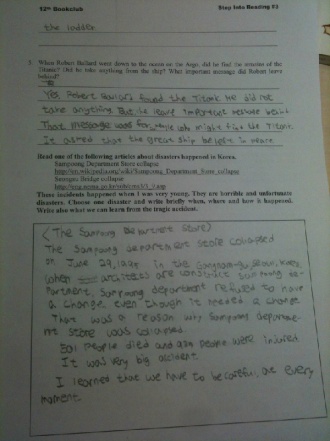 12th Bookclub Step Into Reading #3
the ladder
3. When Robert Ballard went down to the ocean on the Argo, did he find the remains of the
Titanic? Did he take anything from the ship? What important message did Robert leave
behind?
Yes, Robert Ballard found the Titanic. He did not
take anything. But he leave important message behind.
That message was for, people who might find the Titanic
It asked that the great ship be left in peace.
Read one of the following articles about disasters happened in Korea.
Sampoong Department Store collapse
http://en.wikipedia.org/wiki/Sampoong_Department_Store_collapse
Seongsu Bridge collapse
These incidents happened when I was very young. They are horrible and unfortunate
disasters. Choose one disaster and write briefly when, where and how it happened.
Write also what we can learn from the tragic accident.
<The Sampoong Department Store>
The Sampoong department store collapsed
on June 29, 1995 in the Seoul, Korea.
When architects are construct Sampoong de-
partment, Sampoong department refused to have
a change even though it needed a change.
That was a reason why Sampoong departme-
nt store was collapsed.
People died and people were injured.
It was very big accident.
I learned that we have to be careful, at every
moment.